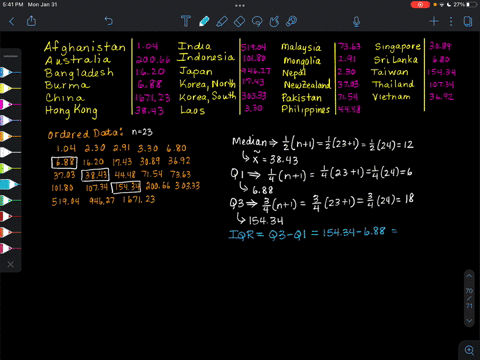 5:41 PM Mon Jan 31
27%
Afghanistan 1.04 India 519.04 Malaysia 73.63 Singapore 30.89
Australia 200.66 Indonesia 101.80 Mongolia 2.91 Sri Lanka 6.80
Bangladesh 16.20 Japan 946.27 Nepal 2.30 Taiwan 154.34
Burma 6.88 Korea, North 17.43 New Zealand 37.03 Thailand 107.34
China 1671.23 Korea, South 303.33 Pakistan 71.54 Vietnam 36.92
Hong Kong 38.43 Laos 3.30 Philippines 44.48
Ordered Data: n=23
1.04 2.30 2.91 3.30 6.80
6.88 16.20 17.43 30.89 36.92
37.03 38.43 44.48 71.54 73.63
101.80 107.34 154.34 200.66 303.33
519.04 946.27 1671.23
Median ⇒ 1/2 (n+1) = 1/2 (23+1) = 1/2 (24) = 12
↳ x̃ = 38.43
Q1 ⇒ 1/4 (n+1) = 1/4 (23+1) = 1/4 (24) = 6
↳ 6.88
Q3 ⇒ 3/4 (n+1) = 3/4 (23+1) = 3/4 (24) = 18
↳ 154.34
IQR = Q3 - Q1 = 154.34 - 6.88 =
70
71